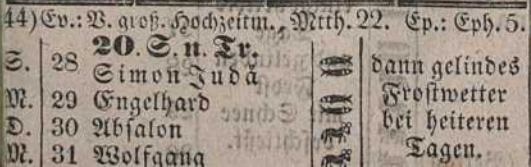 44) Ev.: V. groß. Hochzeitm., Mtth. 22. Ep.: Eph. 5.
20. S. n. Tr.
S. 28 Simon Judä dann gelindes
M. 29 Engelhard Frostwetter
D. 30 Absalon bei heiteren
M. 31 Wolfgang Tagen.